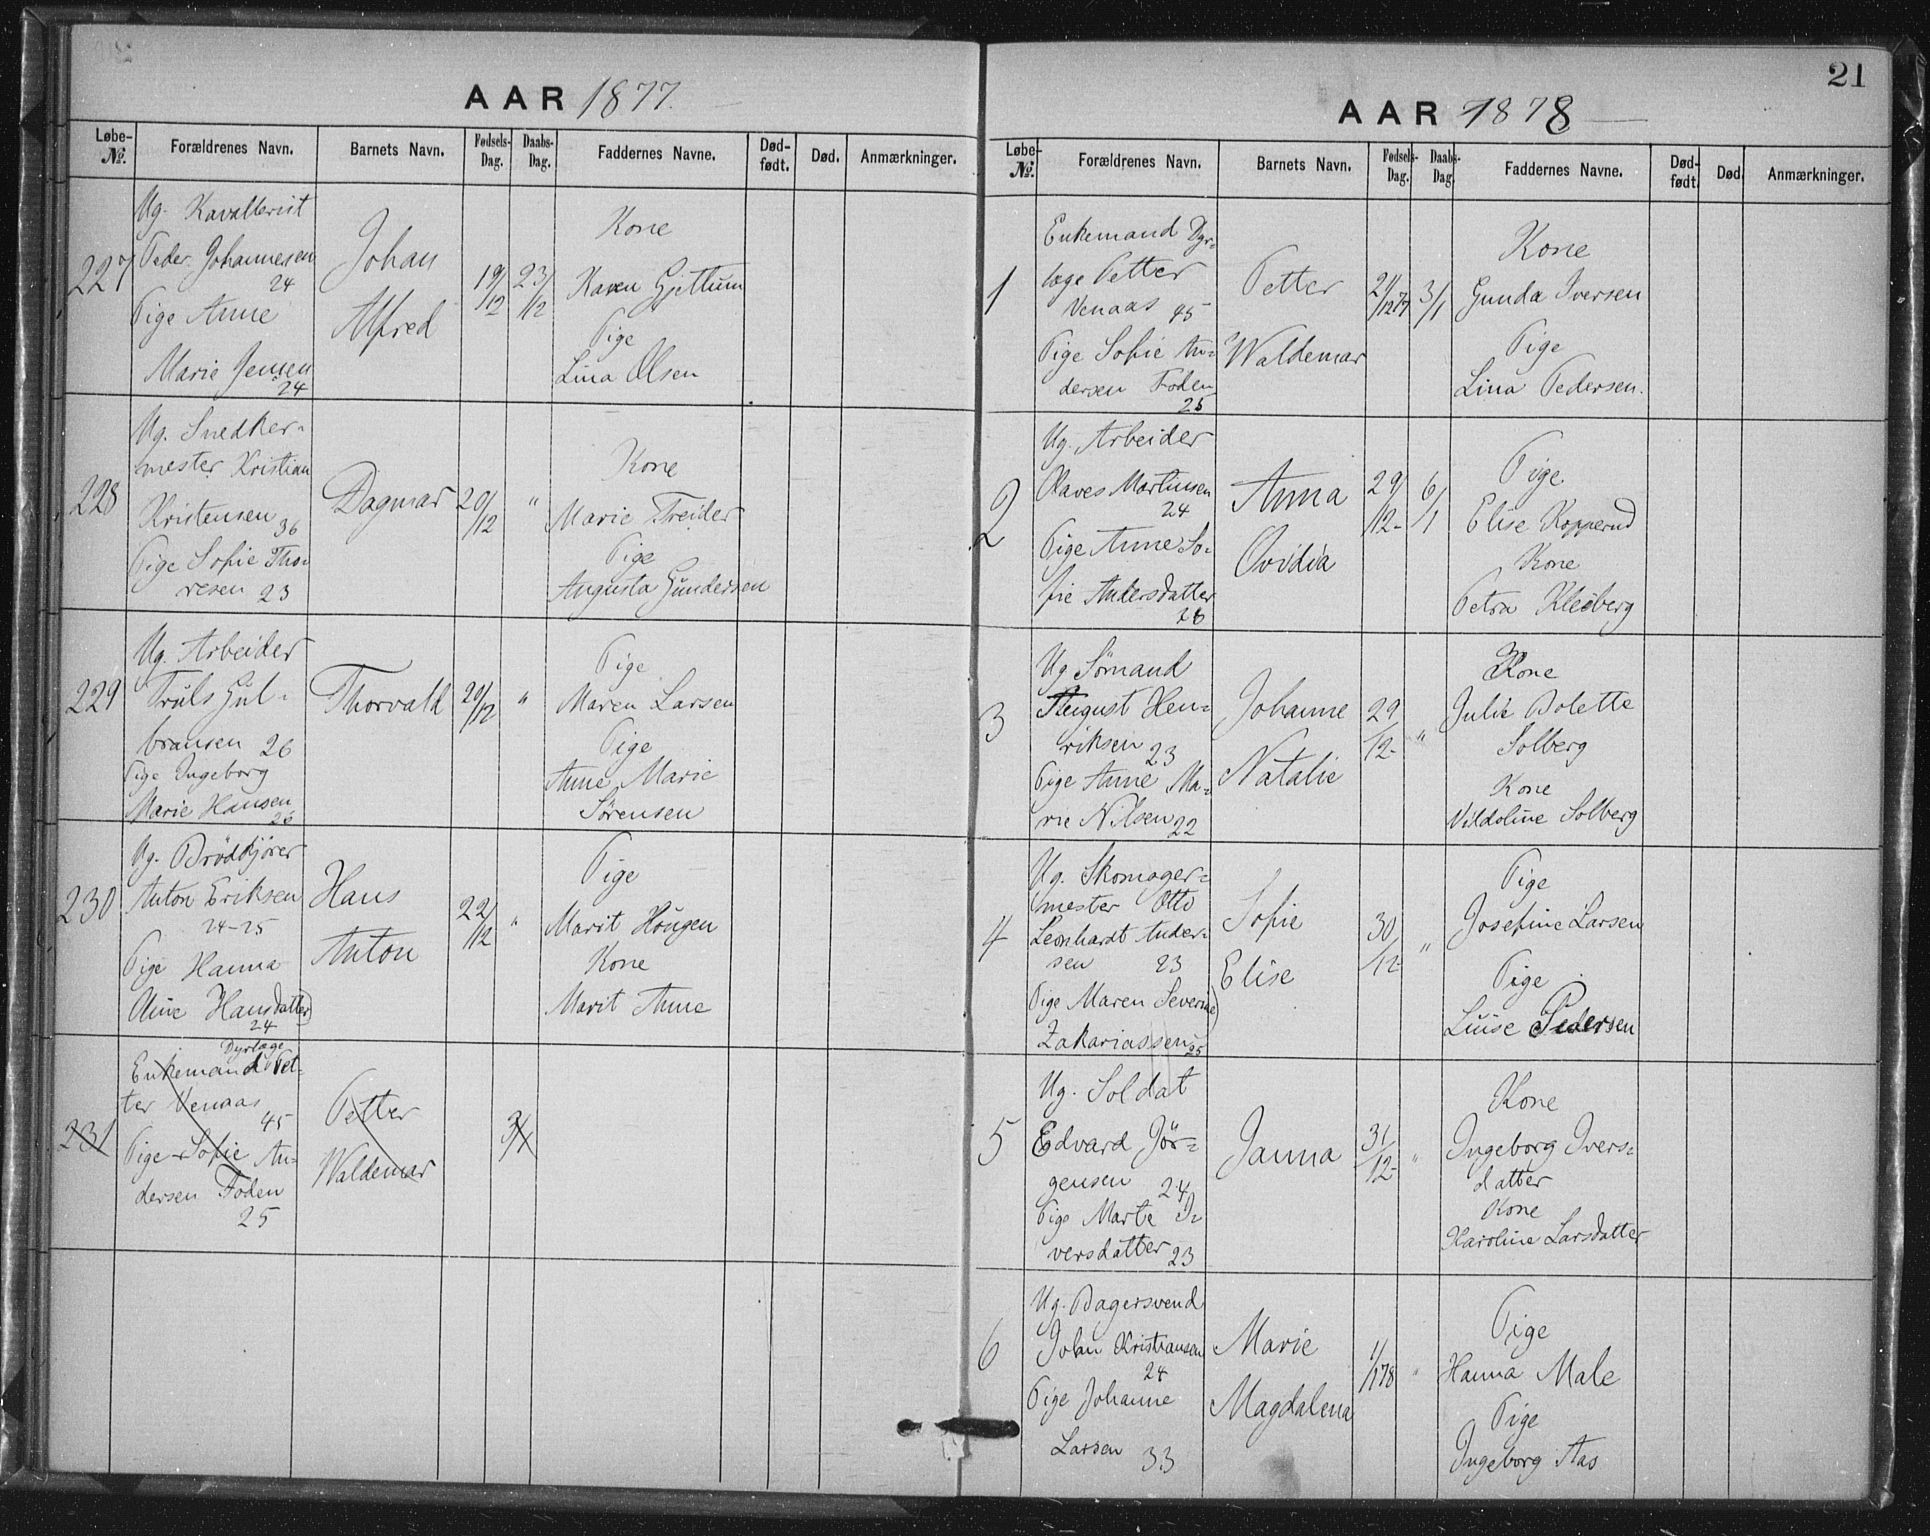 AAR 1877.
Løbe- No.
Forældrenes Navn.
Barnets Navn.
Fødsels-Dag.
Daabs-Dag.
Faddernes Navne.
Død-født.
Død.
Anmærkninger.
227
Ug. Kavallerist
Peder Johannesen
24
Pige Anne
Marie Jensen
24
Johan
Alfred
19/12
23/12
Kone
Karen Gjettum
Pige
Lina Olsen
228
Ug. Snedker-
mester Kristian
Kristensen 36
Pige Sofie Tho-
resen 23
Dagmar
20/12
"
Kone
Marie Treider
Pige
Augusta Gundersen
229
Ug. Arbeider
Truls Gul-
bransen 26
Pige Ingeborg
Marie Hansen
26
Thorvald
20/12
"
Pige
Maren Larsen
Pige
Anne Marie
Sørensen
230
Ug. Brødkjører
Anton Eriksen
24-25
Pige Hanna
Oline Hansdatter
24
Hans
Anton
22/12
"
Pige
Marit Haugen
Kone
Marit Anne
231
Dyrlæge
Enkemand Pet-
ter Venaas
45
Pige Sofie An-
dersen Foden
25
Petter
Waldemar
3/1
21
AAR 1878
Løbe- No.
Forældrenes Navn.
Barnets Navn.
Fødsels-Dag.
Daabs-Dag.
Faddernes Navne.
Død-født.
Død.
Anmærkninger.
1
Enkemand Dyr-
læge Petter
Venaas 45
Pige Sofie An-
dersen Foden
25
Petter
Waldemar
21/12 77
3/1
Kone
Gunda Iversen
Pige
Lina Pedersen.
2
Ug. Arbeider
Olaves Martinsen
24
Pige Anne So-
fie Andersdatter
28
Anna
Ovidia
29/12-
6/1
Pige
Elise Kopperud
Kone
Petra Kleiberg
3
Ug Sømand
August Hen-
riksen 23
Pige Anne Ma-
rie Nilsen 22
Johanne
Natalie
29/12-
"
Kone
Julie Bolette
Solberg
Kone
Vildoline Solberg
4
Ug. Skomager-
mester Otto
Leonhardt Ander-
sen 23
Pige Maren Severine
Zakariassen 25
Sofie
Elise
30/12
"
Pige
Josefine Larsen
Pige
Luise Pedersen
5
Ug. Soldat
Edvard Jör-
gensen 24
Pige Marte I-
versdatter 23
Janna
31/12-
"
Kone
Ingeborg Ivers-
datter
Kone
Karoline Larsdatter
6
Ug. Bagersvend
Johan Kristiansen
24
Pige Johanne
Larsen 33
Marie
Magdalena
1/1 78
"
Pige
Hanna Male
Pige
Ingeborg Aas